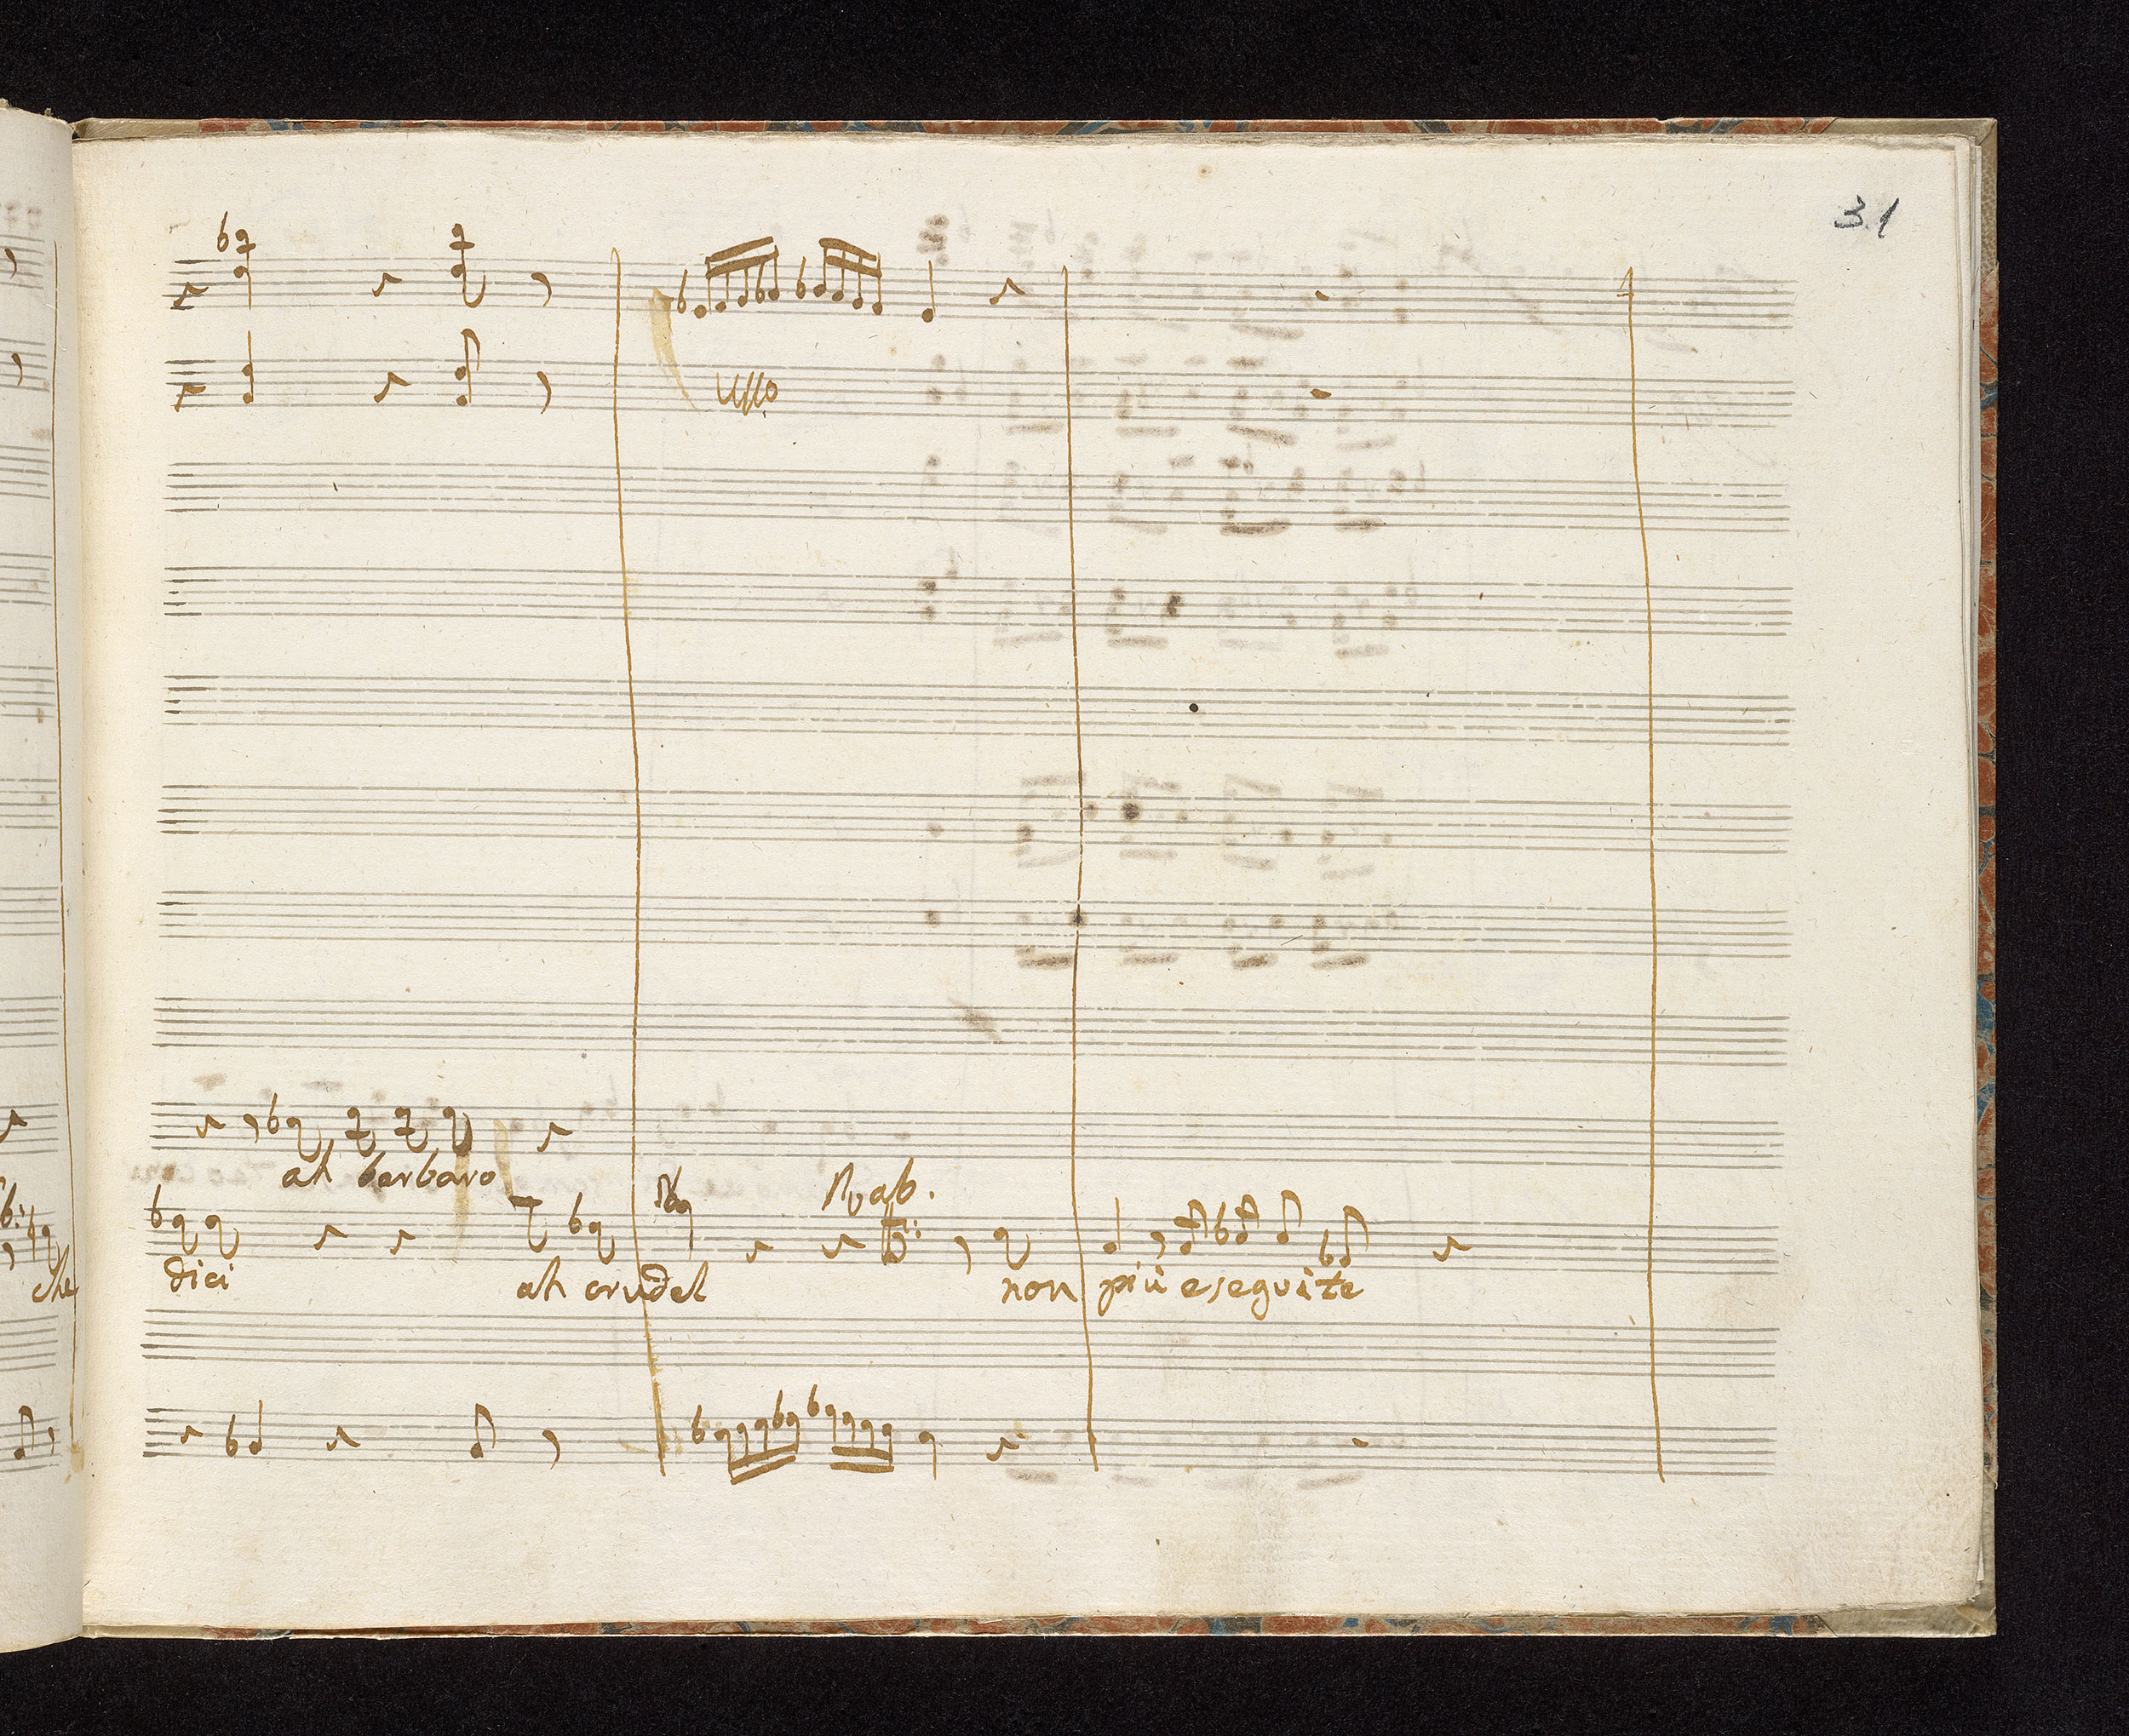 31
ah barbaro
Nab.
che
dici ah crudel non più eseguite